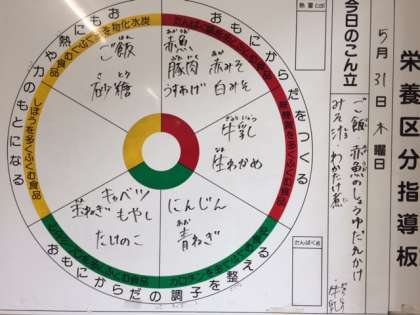 栄養区分指導板
5月31日木曜日
今日のこん立
ご飯 赤魚のしょうゆだれかけ
みそ汁 わかたけ煮
牛乳
熱量cal
たんぱく g
おもにからだをつくる
おもにからだの調子を整える
力や熱にもおもになる
赤魚
豚肉 赤みそ
うすあげ 白みそ
ぎゅうにゅう
牛乳
なま
生わかめ
にんじん
青ねぎ
キャベツ
玉ねぎ もやし
たけのこ
ご飯
さとう
砂糖
しぼうを多くふくむ食品